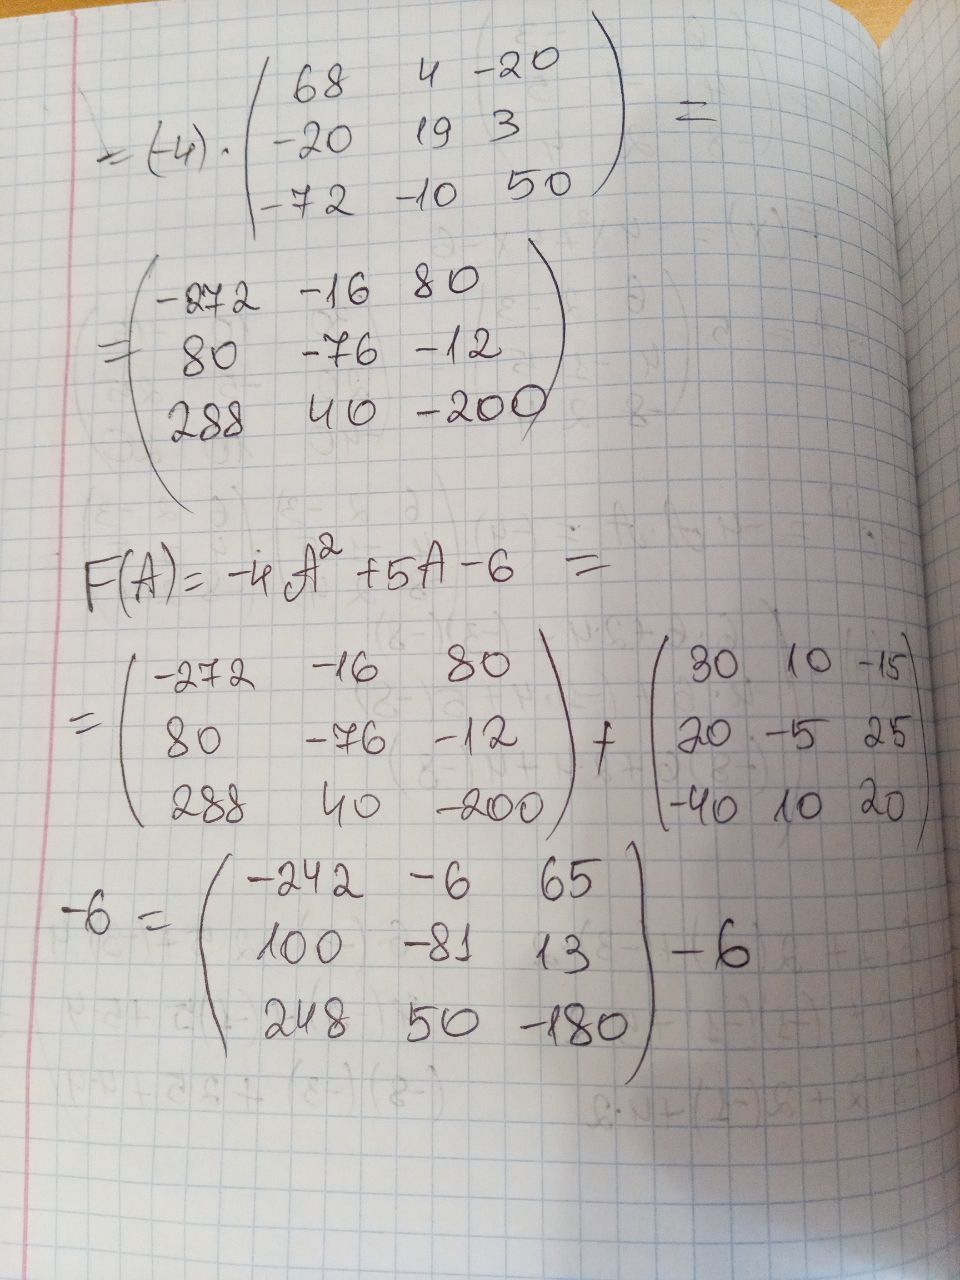 = (-4) · ( 68 4 -20
-20 19 3
-72 -10 50 ) =
= ( -272 -16 80
80 -76 -12
288 40 -200 )
F(A) = -4A² + 5A - 6 =
= ( -272 -16 80
80 -76 -12
288 40 -200 ) + ( 30 10 -15
20 -5 25
-40 10 20 )
-6 = ( -242 -6 65
100 -81 13
248 50 -180 ) - 6